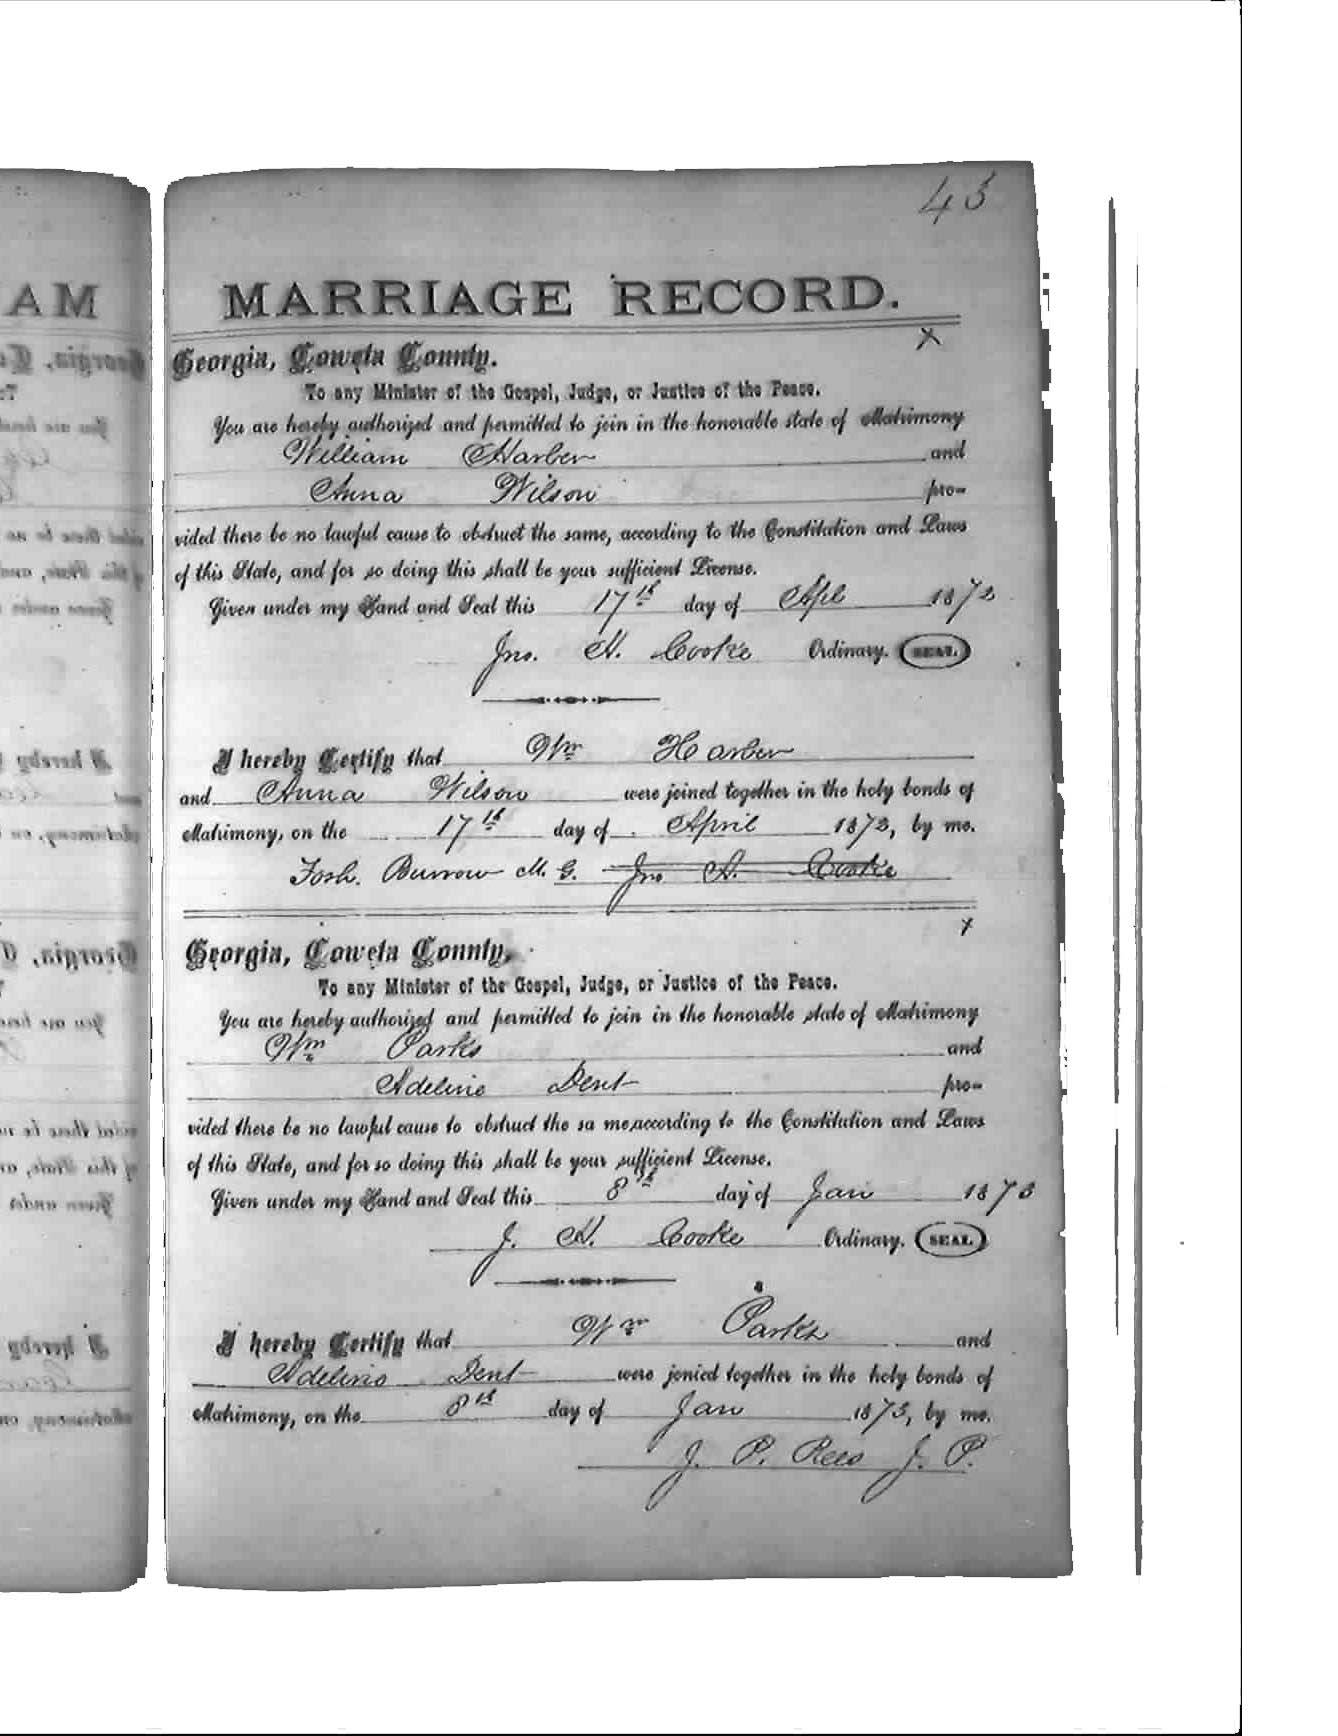 45
MARRIAGE RECORD.
x
Georgia, Coweta County.
To any Minister of the Gospel, Judge, or Justice of the Peace.
You are hereby authorized and permitted to join in the honorable state of Matrimony
William Harber and
Anna Wilson pro-
vided there be no lawful cause to obstruct the same, according to the Constitution and Laws
of this State, and for so doing this shall be your sufficient License.
Given under my Hand and Seal this 17th day of Apl 1873
Jno. H. Cooke Ordinary. SEAL.
I hereby Certify that Wm Harber
and Anna Wilson were joined together in the holy bonds of
Matrimony, on the 17th day of April 1873, by me.
Josh. Burrow M. G. Jno H. Cooke
x
Georgia, Coweta County,
To any Minister of the Gospel, Judge, or Justice of the Peace.
You are hereby authorized and permitted to join in the honorable state of Matrimony
Wm Parks and
Adeline Dent pro-
vided there be no lawful cause to obstruct the sa me,according to the Constitution and Laws
of this State, and for so doing this shall be your sufficient License.
Given under my Hand and Seal this 8th day of Jan 1873
J. H. Cooke Ordinary. SEAL
I hereby Certify that Wm Parks and
Adeline Dent were jonied together in the holy bonds of
Matrimony, on the 8th day of Jan 1873, by me.
J. P. Rees J. P.